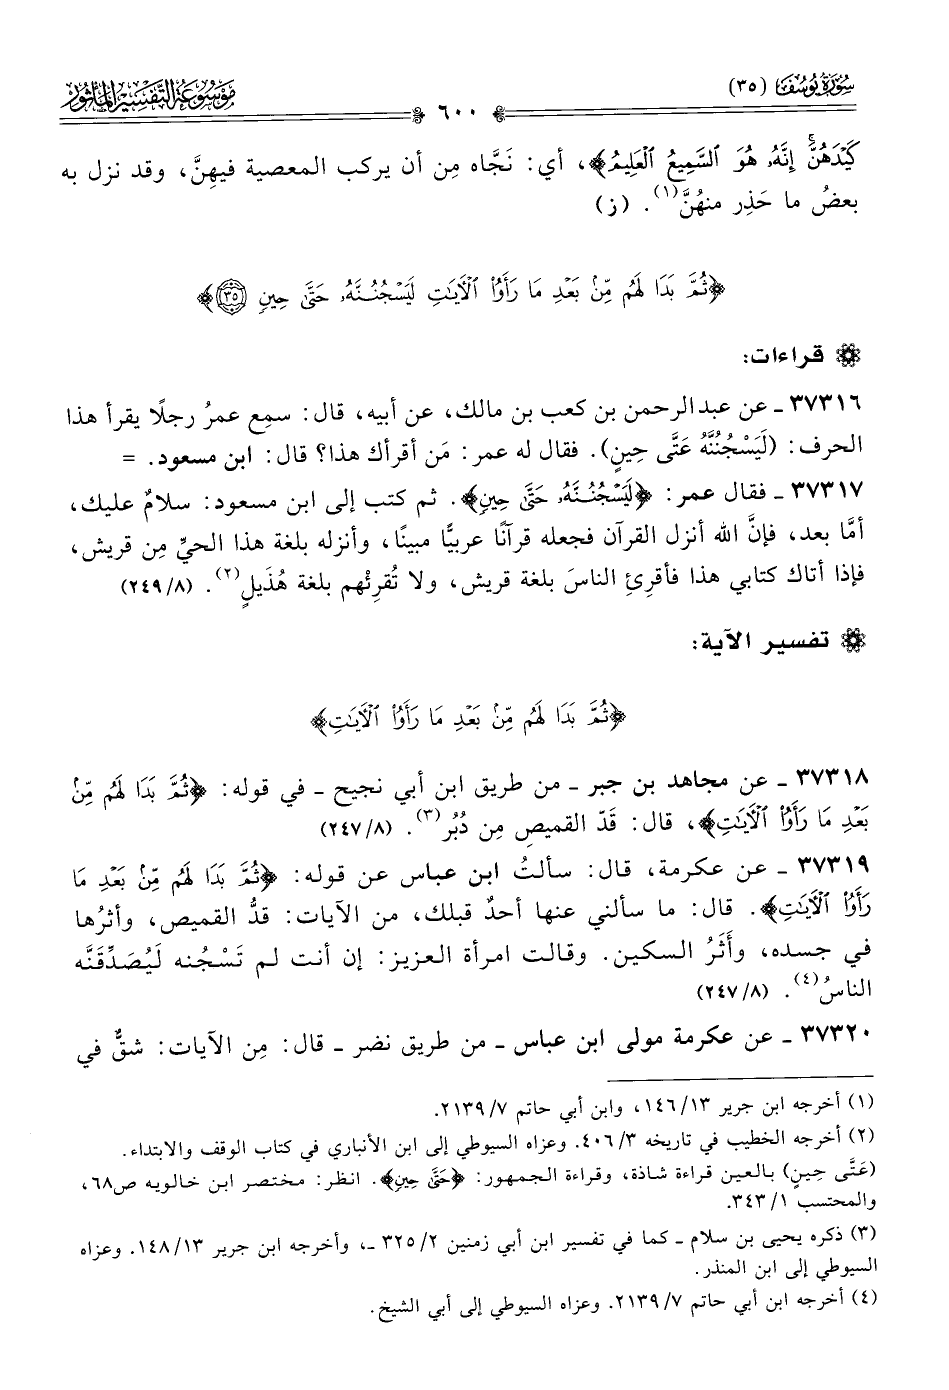 سُورَةُ يُوسُفَ (٣٥)
٦٠٠
مَوْسُوعَةُ التَّفْسِيرِ المَأْثُورِ
كَيْدَهُنَّۚ إِنَّهُۥ هُوَ ٱلسَّمِيعُ ٱلْعَلِيمُ﴾، أي: نَجَّاه مِن أن يركب المعصية فيهِنَّ، وقد نزل به
بعضُ ما حَذِر منهُنَّ(١). (ز)
﴿ثُمَّ بَدَا لَهُم مِّنۢ بَعْدِ مَا رَأَوُا۟ ٱلْـَٔايَـٰتِ لَيَسْجُنُنَّهُۥ حَتَّىٰ حِينٍ ٣٥﴾
قراءات:
٣٧٣١٦ ـ عن عبدالرحمن بن كعب بن مالك، عن أبيه، قال: سمِع عمرُ رجلًا يقرأ هذا
الحرف: (لَيَسْجُنُنَّهُ عَتَّى حِينٍ). فقال له عمر: مَن أقرأك هذا؟ قال: ابن مسعود. =
٣٧٣١٧ ـ فقال عمر: ﴿لَيَسْجُنُنَّهُۥ حَتَّىٰ حِينٍ﴾. ثم كتب إلى ابن مسعود: سلامٌ عليك،
أمَّا بعد، فإنَّ الله أنزل القرآن فجعله قرآنًا عربيًّا مبينًا، وأنزله بلغة هذا الحيِّ مِن قريش،
فإذا أتاك كتابي هذا فأقرِئِ الناسَ بلغة قريش، ولا تُقرِئْهم بلغة هُذَيلٍ(٢). (٢٤٩/٨)
تفسير الآية:
﴿ثُمَّ بَدَا لَهُم مِّنۢ بَعْدِ مَا رَأَوُا۟ ٱلْـَٔايَـٰتِ﴾
٣٧٣١٨ ـ عن مجاهد بن جبر ـ من طريق ابن أبي نجيح ـ في قوله: ﴿ثُمَّ بَدَا لَهُم مِّنۢ
بَعْدِ مَا رَأَوُا۟ ٱلْـَٔايَـٰتِ﴾، قال: قَدّ القميصِ مِن دُبُر(٣). (٢٤٧/٨)
٣٧٣١٩ ـ عن عكرمة، قال: سألتُ ابن عباس عن قوله: ﴿ثُمَّ بَدَا لَهُم مِّنۢ بَعْدِ مَا
رَأَوُا۟ ٱلْـَٔايَـٰتِ﴾. قال: ما سألني عنها أحدٌ قبلك، من الآيات: قدُّ القميص، وأثرُها
في جسده، وأَثَرُ السكين. وقالت امرأة العزيز: إن أنت لم تَسْجُنه لَيُصَدِّقَنَّه
الناسُ(٤). (٢٤٧/٨)
٣٧٣٢٠ ـ عن عكرمة مولى ابن عباس ـ من طريق نضر ـ قال: مِن الآيات: شقٌّ في
(١) أخرجه ابن جرير ١٤٦/١٣، وابن أبي حاتم ٢١٣٩/٧.
(٢) أخرجه الخطيب في تاريخه ٤٠٦/٣. وعزاه السيوطي إلى ابن الأنباري في كتاب الوقف والابتداء.
(عَتَّى حِينٍ) بالعين قراءة شاذة، وقراءة الجمهور: ﴿حَتَّىٰ حِينٍ﴾. انظر: مختصر ابن خالويه ص٦٨،
والمحتسب ٣٤٣/١.
(٣) ذكره يحيى بن سلام ـ كما في تفسير ابن أبي زمنين ٣٢٥/٢ ـ، وأخرجه ابن جرير ١٤٨/١٣. وعزاه
السيوطي إلى ابن المنذر.
(٤) أخرجه ابن أبي حاتم ٢١٣٩/٧. وعزاه السيوطي إلى أبي الشيخ.